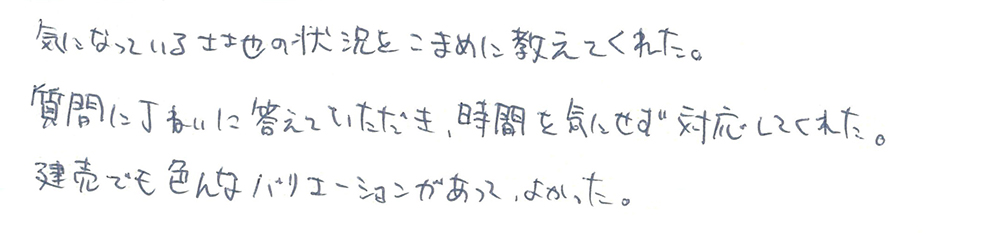 気になっている土地の状況をこまめに教えてくれた。
質問に丁ねいに答えていただき、時間を気にせず対応してくれた。
建売でも色んなバリエーションがあって、よかった。